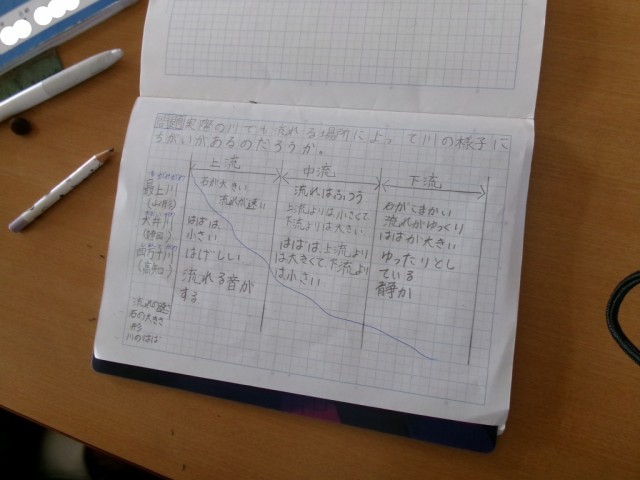 問題 実際の川でも流れる場所によって川の様子に
ちがいがあるのだろうか。
上流
中流
下流
もがみがわ
最上川
(山形)
大井川
(静岡)
四万十川
(高知)
流れの速さ
石の大きさ
形
川のはば
石が大きい
流れが速い
はばは、
小さい
はげしい
流れる音が
する
流れはふつう
上流よりは小さくて
下流よりは大きい
はばは上流より
は大きくて下流より
は小さい
石がこまかい
流れがゆっくり
はばが大きい
ゆったりとし
ている
静か